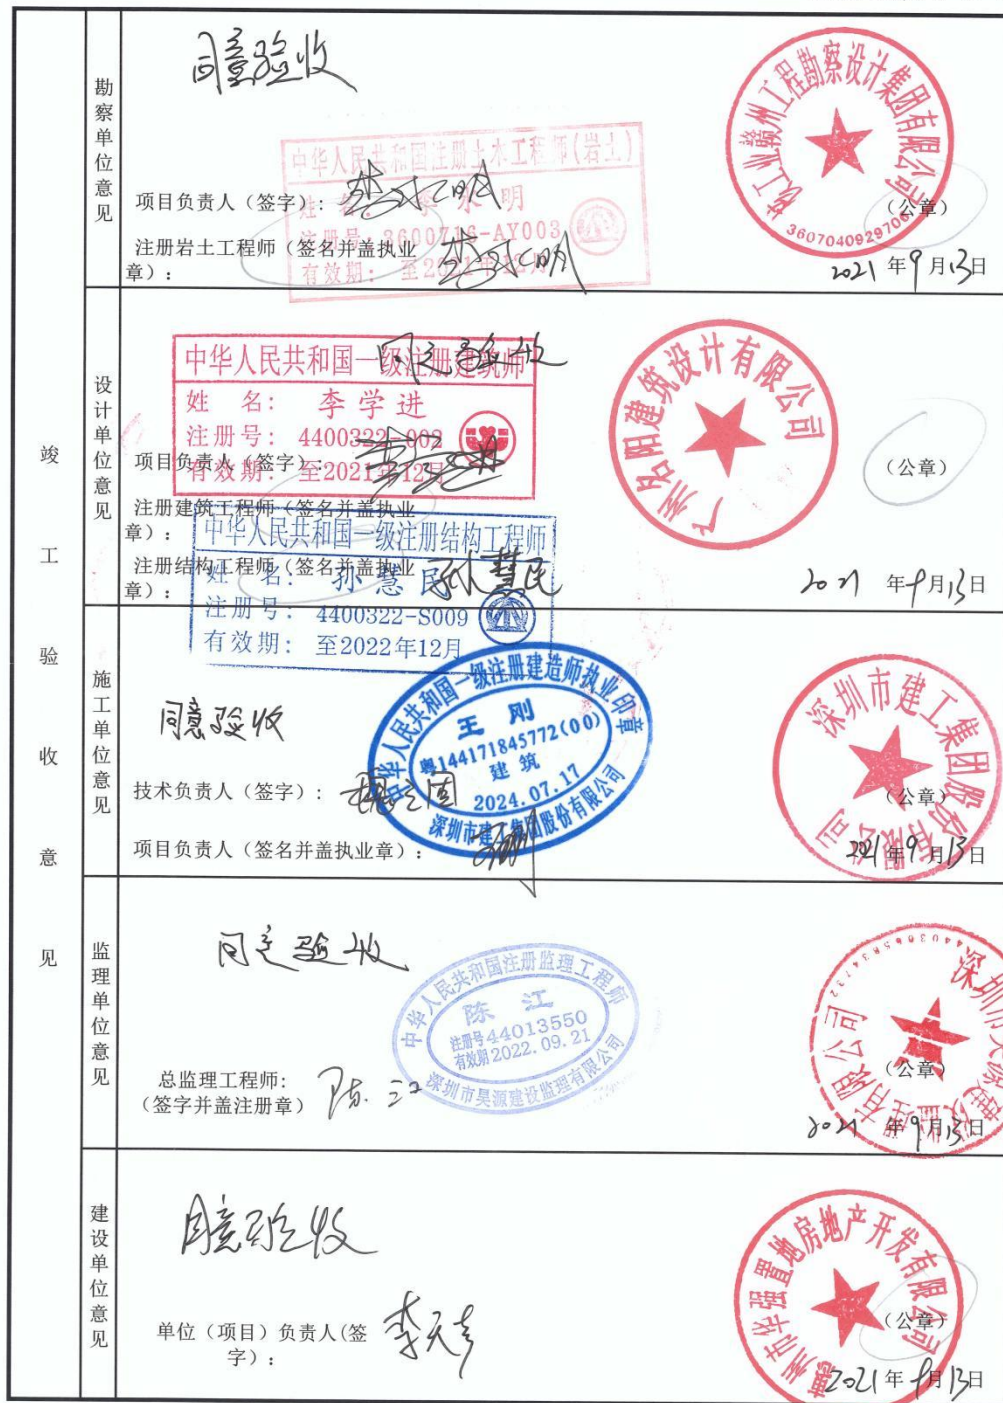 竣工验收意见
勘察单位意见
同意验收
中华人民共和国注册土木工程师(岩土)
姓 名: 李永明
注册号: 3600716-AY003
有效期: 至2021年12月
项目负责人（签字）:
李永明
注册岩土工程师（签名并盖执业
章）:
李永明
核工业赣州工程勘察设计集团有限公司
3607040929706
（公章）
2021 年 9 月 13 日
设计单位意见
同意验收
中华人民共和国一级注册建筑师
姓 名: 李学进
注册号: 4400322-002
有效期: 至2021年12月
项目负责人（签字）:
李学进
注册建筑工程师（签名并盖执业
章）:
中华人民共和国一级注册结构工程师
注册结构工程师（签名并盖执业
章）:
姓 名: 孙慧民
孙慧民
注册号: 4400322-S009
有效期: 至2022年12月
广州名阳建筑设计有限公司
（公章）
2021 年 9 月 13 日
施工单位意见
同意验收
中华人民共和国一级注册建造师执业印章
王 刚
粤144171845772(00)
建 筑
2024.07.17
深圳市建工集团股份有限公司
技术负责人（签字）:
项目负责人（签名并盖执业章）:
王刚
深圳市建工集团股份有限公司
（公章）
2021 年 9 月 13 日
监理单位意见
同意验收
中华人民共和国注册监理工程师
陈 江
注册号44013550
有效期2022.09.21
深圳市昊源建设监理有限公司
总监理工程师:
（签字并盖注册章）
陈江
深圳市昊源建设监理有限公司
（公章）
2021 年 9 月 13 日
建设单位意见
同意验收
单位（项目）负责人(签
字）:
李天彦
赣州市华强置地房地产开发有限公司
（公章）
2021 年 9 月 13 日